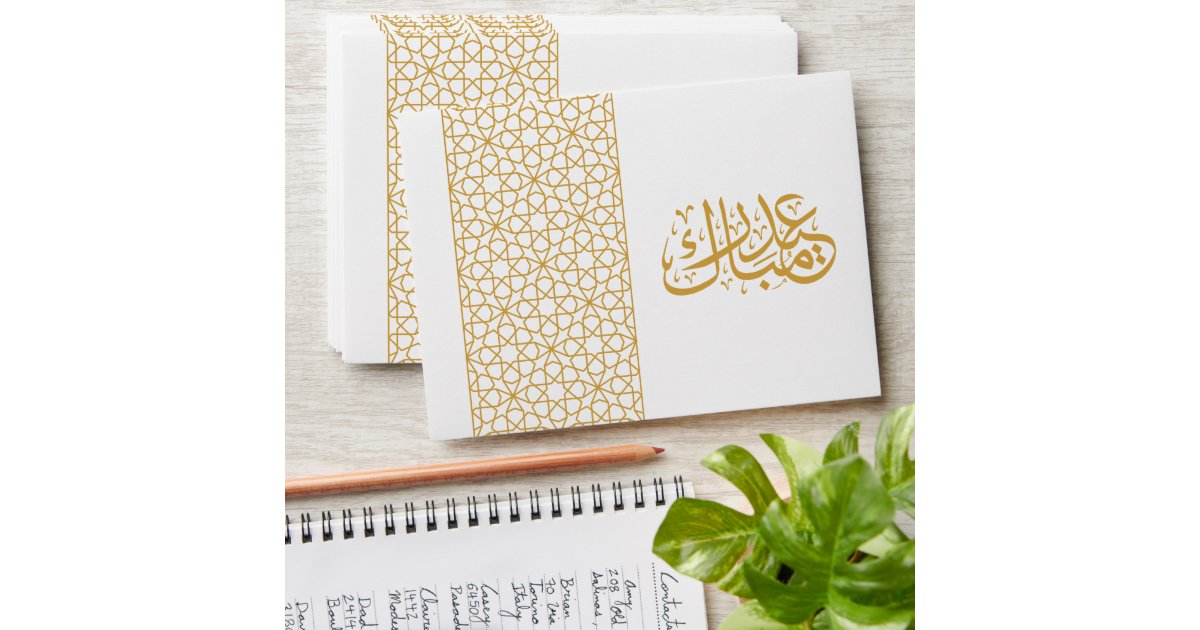 عيد مبارك
Contacts
Amy
208
Salinas,
Brian
70 Via
Torino
Italy
Casey
64501
Pasade
Claire
1442
Modes
Dad
2414
Boul
Dav